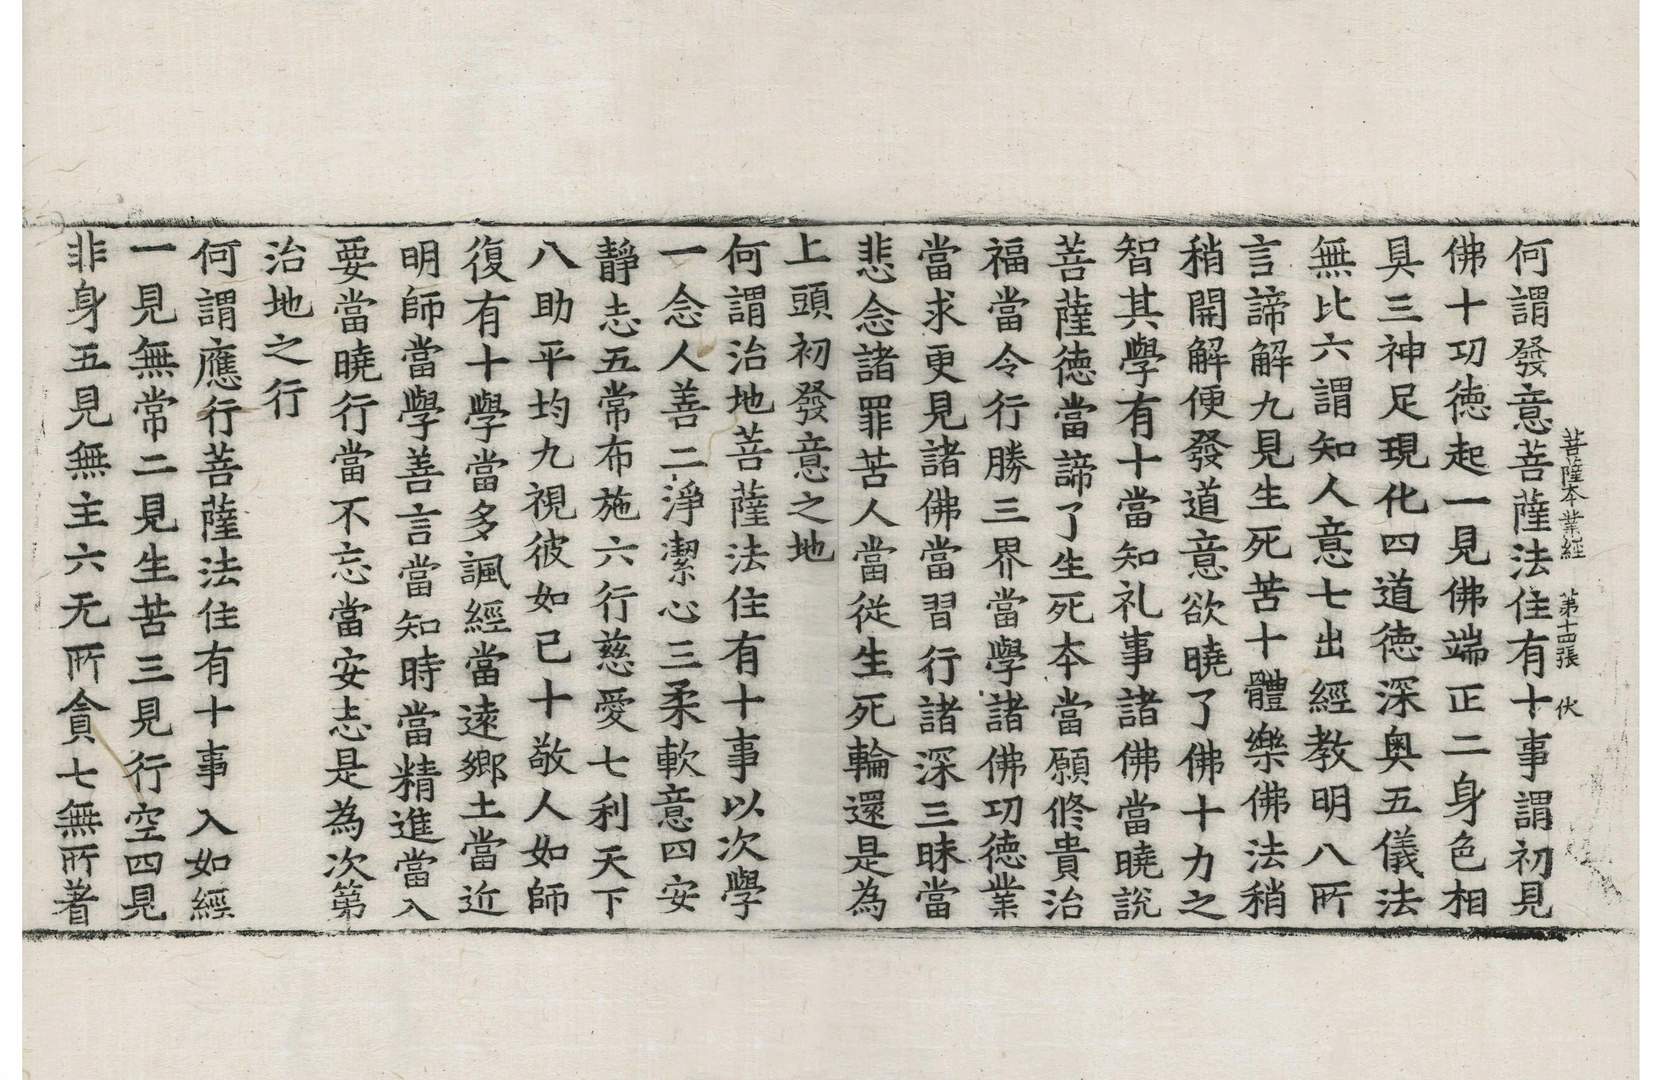 菩薩本業經 第十四張 伏
何謂發意菩薩法住有十事謂初見
佛十功徳起一見佛端正二身色相
具三神足現化四道徳深奥五儀法
無比六謂知人意七出經教明八所
言諦解九見生死苦十體樂佛法稍
稍開解便發道意欲曉了佛十力之
智其學有十當知礼事諸佛當曉說
菩薩徳當諦了生死本當願修貴治
福當令行勝三界當學諸佛功徳業
當求更見諸佛當習行諸深三昧當
悲念諸罪苦人當從生死輪還是為
上頭初發意之地
何謂治地菩薩法住有十事以次學
一念人善二淨潔心三柔軟意四安
靜志五常布施六行慈愛七利天下
八助平均九視彼如已十敬人如師
復有十學當多諷經當遠鄉土當近
明師當學善言當知時當精進當入
要當曉行當不忘當安志是為次第
治地之行
何謂應行菩薩法住有十事入如經
一見無常二見生苦三見行空四見
非身五見無主六无所貪七無所著